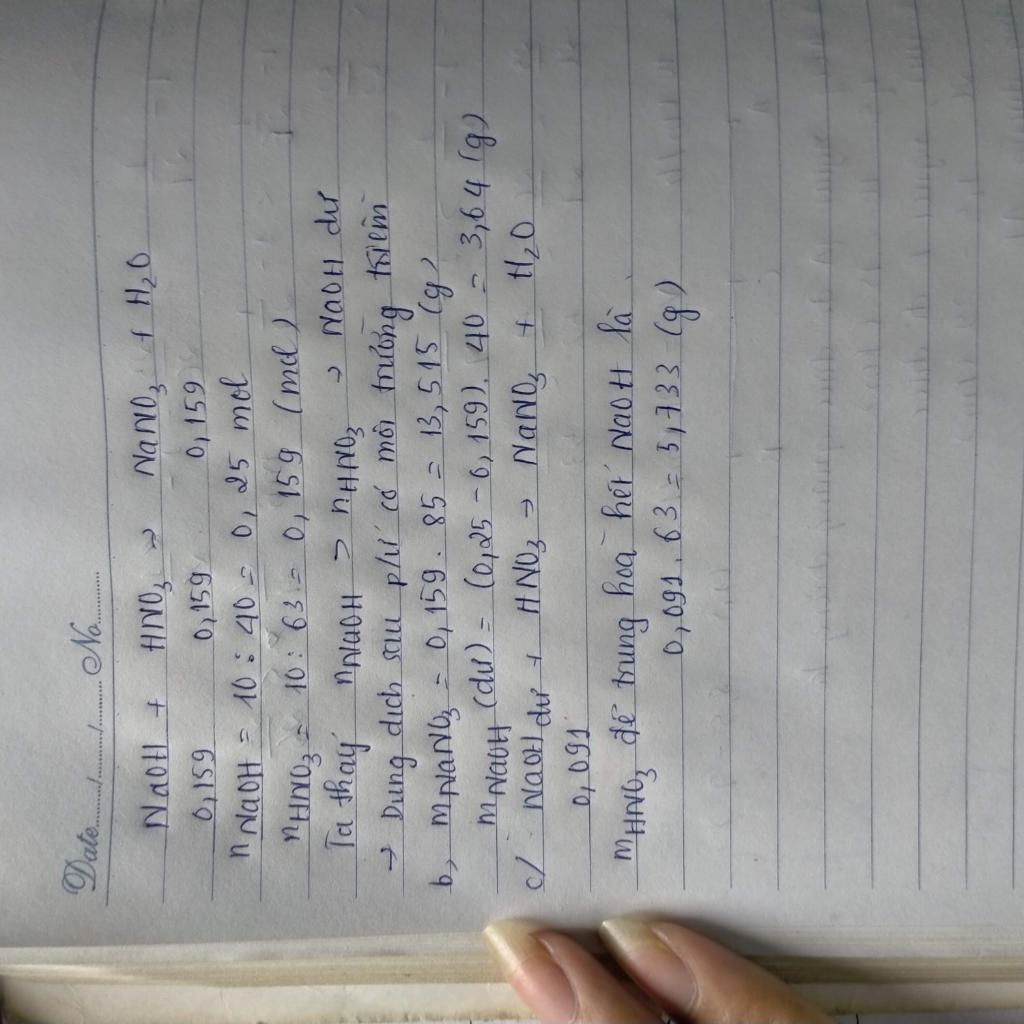 Date ......./......./....... No.......
NaOH + HNO3 → NaNO3 + H2O
0,159 0,159 0,159
nNaOH = 10 : 40 = 0,25 mol
nHNO3 = 10 : 63 = 0,159 (mol)
Ta thấy nNaOH > nHNO3 → NaOH dư
→ Dung dịch sau p/ứ có môi trường kiềm
b, mNaNO3 = 0,159 . 85 = 13,515 (g)
mNaOH (dư) = (0,25 - 0,159). 40 = 3,64 (g)
c/ NaOH dư + HNO3 → NaNO3 + H2O
0,091
mHNO3 để trung hoà hết NaOH là
0,091 . 63 = 5,733 (g)